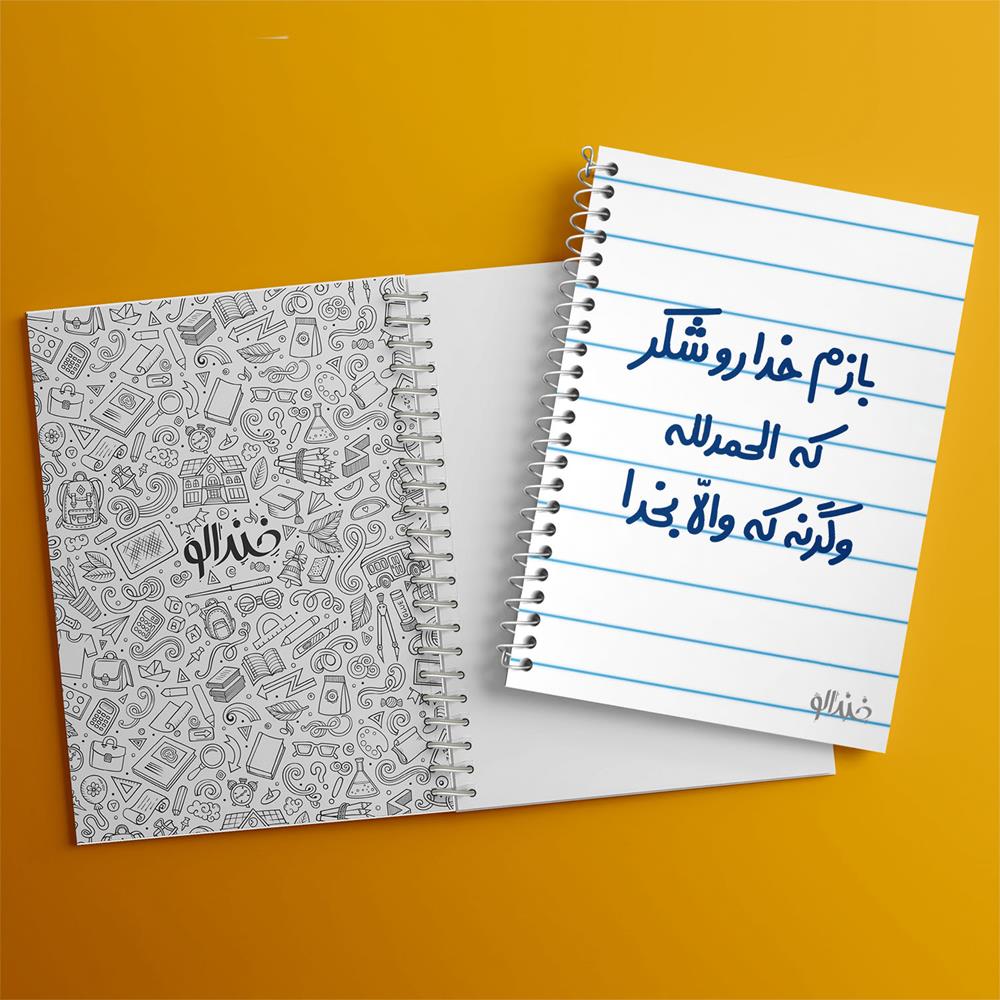 بازم خدا رو شکر
که الحمدلله
وگرنه که والّا بخدا
خندالو
خندالو